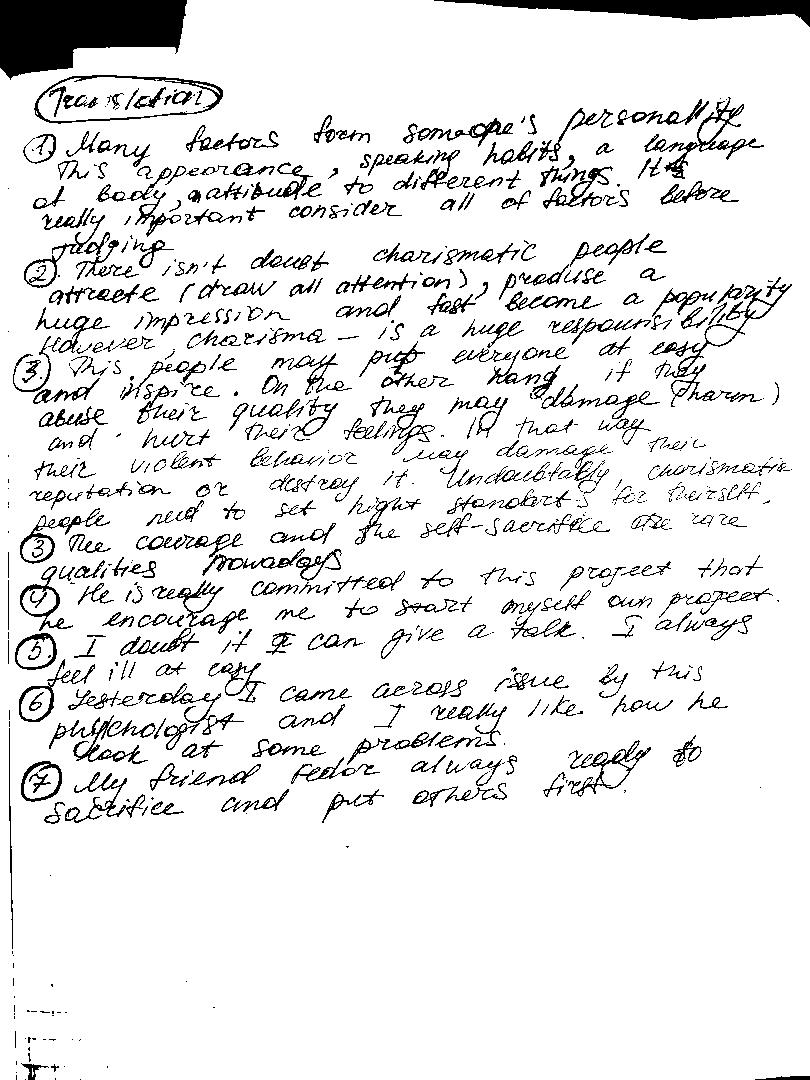 Translation
① Many factors form someone's personality
This appearance, speaking habits, a language
of body, attitude to different things. It's
really important consider all of factors before
judging
②. There isn't doubt charismatic people
attracte (draw all attention), produse a
huge impression and fast become a popularity
However, charisma – is a huge responsibility
3. This people may put everyone at easy
and inspire. On the other hang if they
abuse their quality they may damage (harm)
and hurt their feelings. In that way
their violent behavior may damage their
reputation or destroy it. Undoubtably, charismatic
people need to set hight standorts for theirself.
③ The courage and the self-sacrifice are rare
qualities nowadays
④ He is really committed to this project that
he encourage me to start myself own project.
⑤. I doubt if I can give a talk. I always
feel ill at easy
⑥ Yesterday I came across issue by this
phychologist and I really like how he
look at some problems.
⑦ My friend Fedor always ready to
sacrifice and put others first.